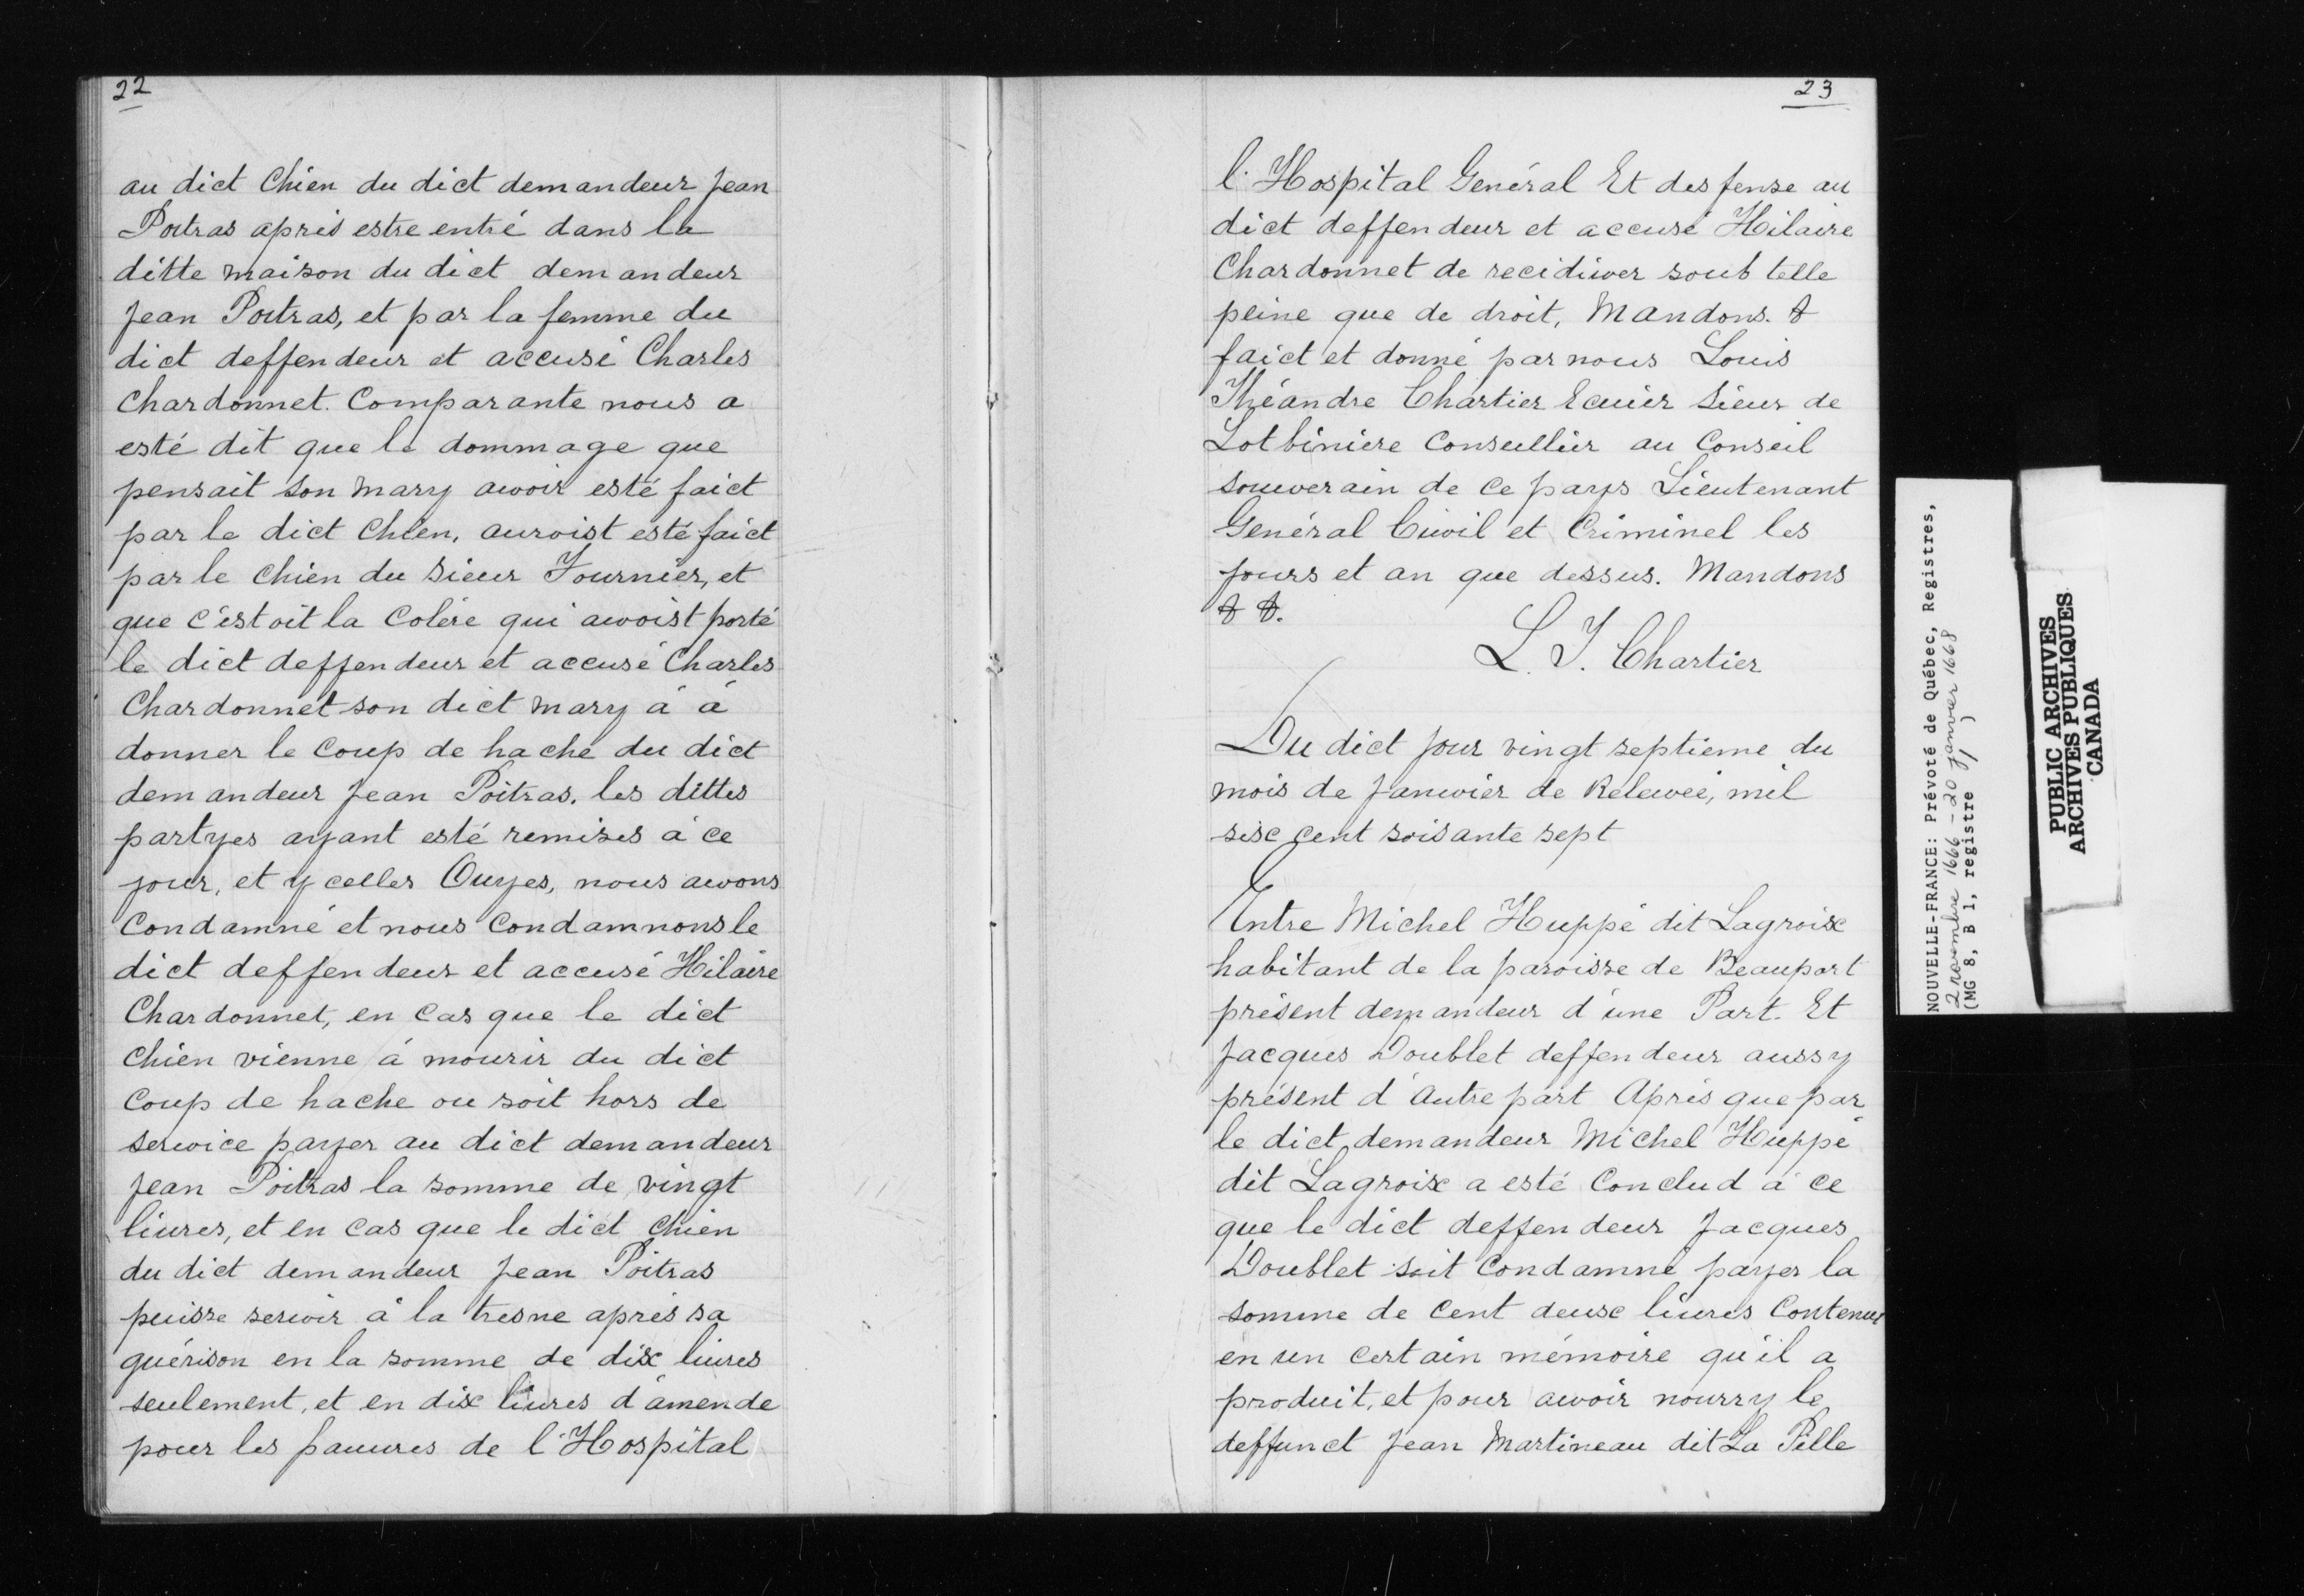 22
au dict Chien du dict demandeur Jean
Poitras aprés estre entré dans la
ditte maison du dict demandeur
Jean Poitras, et par la femme du
dict deffendeur et accusé Charles
Chardonnet. Comparante nous a
esté dit que le dommage que
pensait son mary avoir esté faict
par le dict Chien, auroist esté faict
par le Chien du Sieur Fournier, et
que c'estoit la Colére qui avoist porté
le dict deffendeur et accusé Charles
Chardonnet son dict mary á á
donner le Coup de hache du dict
demandeur Jean Poitras. les dittes
partyes ayant esté remises á ce
jour, et ycelles Ouyes, nous avons
Condamné et nous Condamnons le
dict deffendeur et accusé Hilaire
Chardonnet, en Cas que le dict
Chien vienne á mourir du dict
Coup de hache ou soit hors de
service payer au dict demandeur
Jean Poitras la somme de vingt
liures, et en Cas que le dict Chien
du dict demandeur Jean Poitras
puisse servir á la tresne aprés sa
guérison en la somme de dix liures
seulement, et en dix liures d'amende
pour les pauures de l'Hospital
23
l'Hospital Genéral Et desfense au
dict deffendeur et accusé Hilaire
Chardonnet de recidiver soub telle
peine que de droit, Mandons. &
faict et donné par nous Louis
Théandre Chartier Ecuier Sieur de
Lotbiniere Conseillier au Conseil
souverain de ce pays Lieutenant
Genéral Civil et Criminel les
jours et an que dessus. Mandons
& &.
L. T. Chartier
Du dict jour vingt septieme du
mois de Janvier de Relevée, mil
six cent soisante sept
Entre Michel Huppé dit Lagroix
habitant de la paroisse de Beauport
présent demandeur d'une Part. Et
Jacques Doublet deffendeur aussy
présent d'Autre part Aprés que par
le dict demandeur Michel Huppé
dit Lagroix a esté Conclud á ce
que le dict deffendeur Jacques
Doublet soit Condamné payer la
somme de Cent deux liures Contenue
en un certain mémoire qu'il a
produit, et pour avoir nourry le
deffunct Jean Martineau dit La Pille
NOUVELLE-FRANCE: Prévoté de Québec, Registres,
2 novembre 1666 - 20 janvier 1668
(MG 8, B 1, registre 1)
PUBLIC ARCHIVES
ARCHIVES PUBLIQUES
CANADA